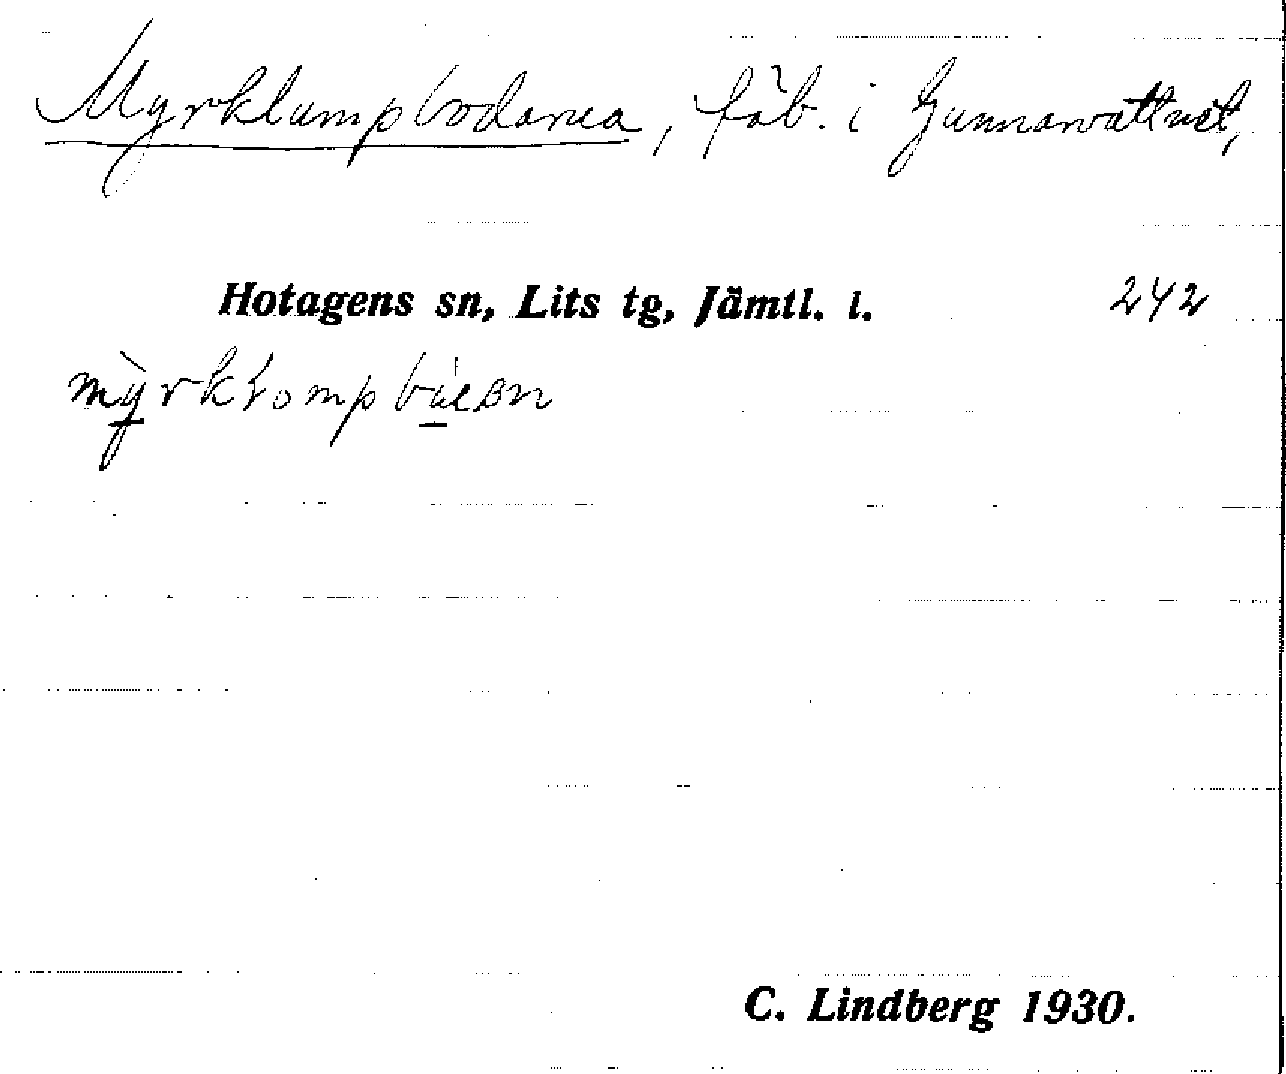 Myrklumpbodarna, fäb. i Gunnarvattnet,
Hotagens sn, Lits tg, Jämtl. l. 242
C. Lindberg 1930.